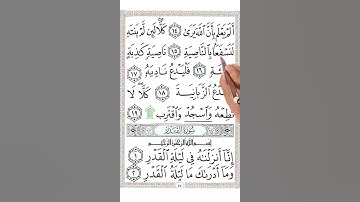 أَلَمْ يَعْلَم بِأَنَّ ٱللَّهَ يَرَىٰ ١٤ كَلَّا لَئِن لَّمْ يَنتَهِ
لَنَسْفَعًۢا بِٱلنَّاصِيَةِ ١٥ نَاصِيَةٍ كَٰذِبَةٍ
١٦ فَلْيَدْعُ نَادِيَهُۥ ١٧
ٱلزَّبَانِيَةَ ١٨ كَلَّا لَا
تُطِعْهُ وَٱسْجُدْ وَٱقْتَرِب ۩ ١٩
سُورَةُ ٱلْقَدْرِ
بِسْمِ ٱللَّهِ ٱلرَّحْمَٰنِ ٱلرَّحِيمِ
إِنَّآ أَنزَلْنَٰهُ فِى لَيْلَةِ ٱلْقَدْرِ ١
وَمَآ أَدْرَىٰكَ مَا لَيْلَةُ ٱلْقَدْرِ ٢